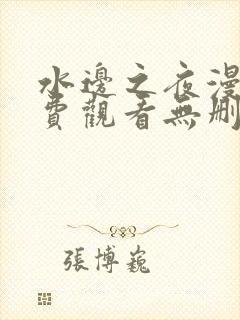 水邊之夜漫
費觀看無刪
張博巍